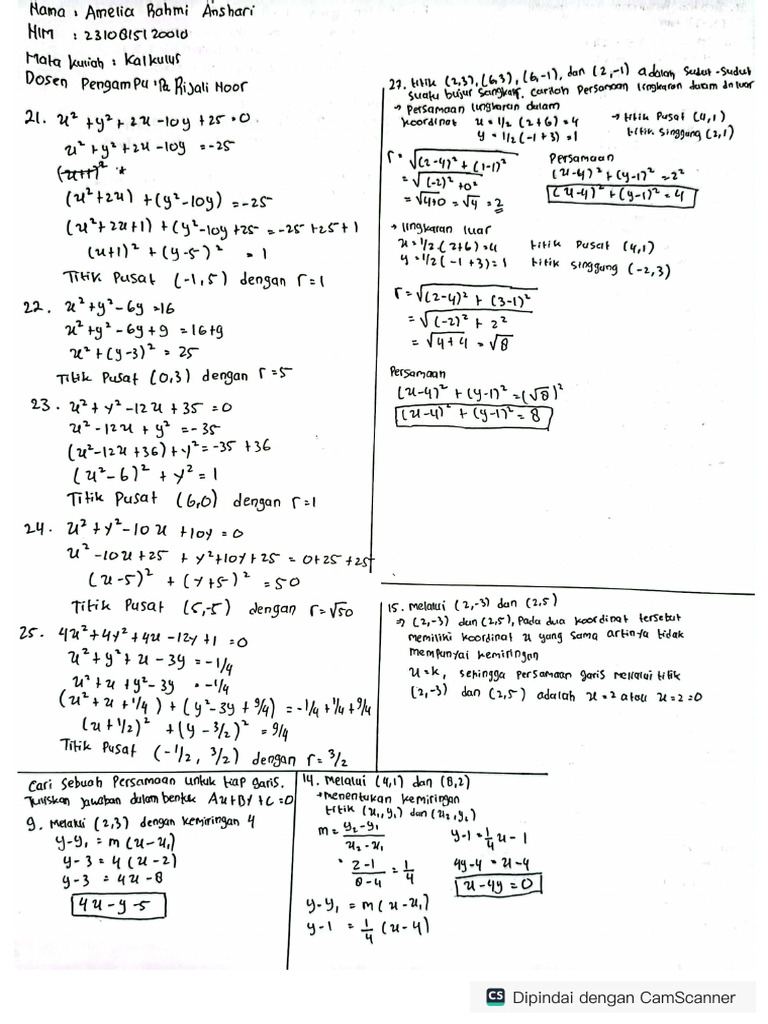 Nama : Amelia Rahmi Anshari
NIM : 2310815120010
Mata kuliah : Kalkulus
Dosen Pengampu : Pa Rijali Noor
21. x² + y² + 2x - 10y + 25 = 0
x² + y² + 2x - 10y = -25
(x+1)²
(x² + 2x) + (y² - 10y) = -25
(x² + 2x + 1) + (y² - 10y + 25 = -25 + 25 + 1
(x+1)² + (y-5)² = 1
Titik Pusat (-1,5) dengan r = 1
22. x² + y² - 6y = 16
x² + y² - 6y + 9 = 16 + 9
x² + (y-3)² = 25
Titik Pusat (0,3) dengan r = 5
23. x² + y² - 12x + 35 = 0
x² - 12x + y² = -35
(x² - 12x + 36) + y² = -35 + 36
(x² - 6)² + y² = 1
Titik Pusat (6,0) dengan r = 1
24. x² + y² - 10x + 10y = 0
x² - 10x + 25 + y² + 10y + 25 = 0 + 25 + 25
(x-5)² + (y+5)² = 50
Titik Pusat (5,-5) dengan r = √50
25. 4x² + 4y² + 4x - 12y + 1 = 0
x² + y² + x - 3y = -1/4
x² + x + y² - 3y = -1/4
(x² + x + 1/4) + (y² - 3y + 9/4) = -1/4 + 1/4 + 9/4
(x + 1/2)² + (y - 3/2)² = 9/4
Titik Pusat (-1/2, 3/2) dengan r = 3/2
27. titik (2,3), (6,3), (6,-1), dan (2,-1) adalah sudut-sudut
suatu bujur sangkar. carilah Persamaan lingkaran dalam dn luar
→ Persamaan lingkaran dalam
koordinat x = 1/2 (2+6) = 4 → titik Pusat (4,1)
y = 1/2 (-1+3) = 1 titik singgung (2,1)
r = √(2-4)² + (1-1)²
= √(-2)² + 0²
= √4+0 = √4 = 2
Persamaan
(x-4)² + (y-1)² = 2²
(x-4)² + (y-1)² = 4
→ lingkaran luar
x = 1/2 (2+6) = 4 titik Pusat (4,1)
y = 1/2 (-1+3) = 1 titik singgung (-2,3)
r = √(2-4)² + (3-1)²
= √(-2)² + 2²
= √4+4 = √8
Persamaan
(x-4)² + (y-1)² = (√8)²
(x-4)² + (y-1)² = 8
15. Melalui (2,-3) dan (2,5)
⇒ (2,-3) dan (2,5), Pada dua koordinat tersebut
memiliki koordinat x yang sama artinya tidak
mempunyai kemiringan
x = k, sehingga persamaan garis melalui titik
(2,-3) dan (2,5) adalah x = 2 atau x = 2 = 0
Cari sebuah Persamaan untuk tiap garis.
Tuliskan jawaban dalam bentuk Ax+By+C=0
9. Melalui (2,3) dengan kemiringan 4
y-y₁ = m(x-x₁)
y-3 = 4(x-2)
y-3 = 4x-8
4x-y-5
14. Melalui (4,1) dan (8,2)
→ menentukan kemiringan
titik (x₁,y₁) dan (x₂,y₂)
m = y₂-y₁/x₂-x₁
= 2-1/8-4 = 1/4
y-y₁ = m(x-x₁)
y-1 = 1/4 (x-4)
y-1 = 1/4 x - 1
4y-4 = x-4
x-4y = 0
CS Dipindai dengan CamScanner